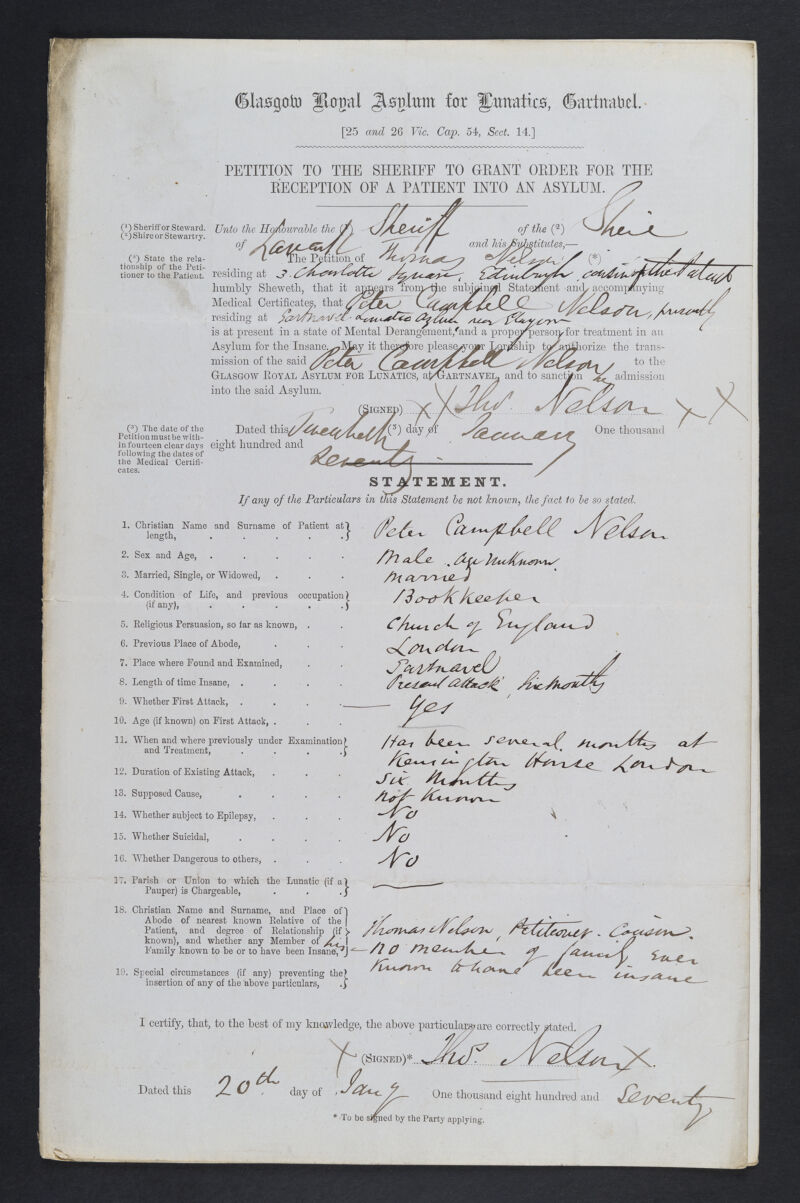 Glasgow Royal Asylum for Lunatics, Gartnavel.
[25 and 26 Vic. Cap. 54, Sect. 14.]
PETITION TO THE SHERIFF TO GRANT ORDER FOR THE
RECEPTION OF A PATIENT INTO AN ASYLUM.
(¹) Sheriff or Steward.
(²) Shire or Stewartry.
Unto the Honourable the (¹) Sheriff of the (²) Shire
of Lanark and his Substitutes,—
(⁴) State the rela-
tionship of the Peti-
tioner to the Patient.
The Petition of Thomas Nelson (⁴)
residing at 3 Charlotte Square, Edinburgh cousin of the Patient
humbly Sheweth, that it appears from the subjoined Statement and accompanying
Medical Certificates, that Peter Campbell Nelson, presently
residing at Gartnavel Lunatic Asylum near Glasgow
is at present in a state of Mental Derangement, and a proper person for treatment in an
Asylum for the Insane. May it therefore please your Lordship to authorize the trans-
mission of the said Peter Campbell Nelson to the
GLASGOW ROYAL ASYLUM FOR LUNATICS, at GARTNAVEL, and to sanction his admission
into the said Asylum.
(SIGNED) X X Thos. Nelson X X
(³) The date of the
Petition must be with-
in fourteen clear days
following the dates of
the Medical Certifi-
cates.
Dated this Twentieth (³) day of January One thousand
eight hundred and seventy
STATEMENT.
If any of the Particulars in this Statement be not known, the fact to be so stated.
1. Christian Name and Surname of Patient at
length, . . . . . Peter Campbell Nelson
2. Sex and Age, . . . . . Male. Age Unknown.
3. Married, Single, or Widowed, . . . married
4. Condition of Life, and previous occupation
(if any), . . . . . Bookkeeper
5. Religious Persuasion, so far as known, . . Church of England
6. Previous Place of Abode, . . . London
7. Place where Found and Examined, . . Gartnavel
8. Length of time Insane, . . . . Present attack six months
9. Whether First Attack, . . . . — Yes
10. Age (if known) on First Attack, . . .
11. When and where previously under Examination
and Treatment, . . . . Has been several months at
Kensington House London
12. Duration of Existing Attack, . . . six months
13. Supposed Cause, . . . . not known
14. Whether subject to Epilepsy, . . . No
15. Whether Suicidal, . . . . No
16. Whether Dangerous to others, . . . No
17. Parish or Union to which the Lunatic (if a
Pauper) is Chargeable, . . . —
18. Christian Name and Surname, and Place of
Abode of nearest known Relative of the
Patient, and degree of Relationship (if Thomas Nelson, Petitioner. Cousin.
known), and whether any Member of his
Family known to be or to have been Insane, — no member of family ever
known to have been insane
19. Special circumstances (if any) preventing the
insertion of any of the above particulars, .
I certify, that, to the best of my knowledge, the above particulars are correctly stated.
X (SIGNED)* Thos. Nelson X.
Dated this 20th day of Jany One thousand eight hundred and seventy
* To be signed by the Party applying.